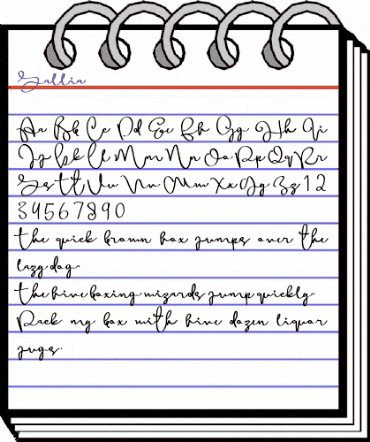 Sallia
Aa Bb Cc Dd Ee Ff Gg Hh Ii
Jj Kk Ll Mm Nn Oo Pp Qq Rr
Ss Tt Uu Vv Ww Xx Yy Zz 1 2
3 4 5 6 7 8 9 0
the quick brown fox jumps over the
lazy dog.
the five boxing wizards jump quickly.
Pack my box with five dozen liquor
jugs.